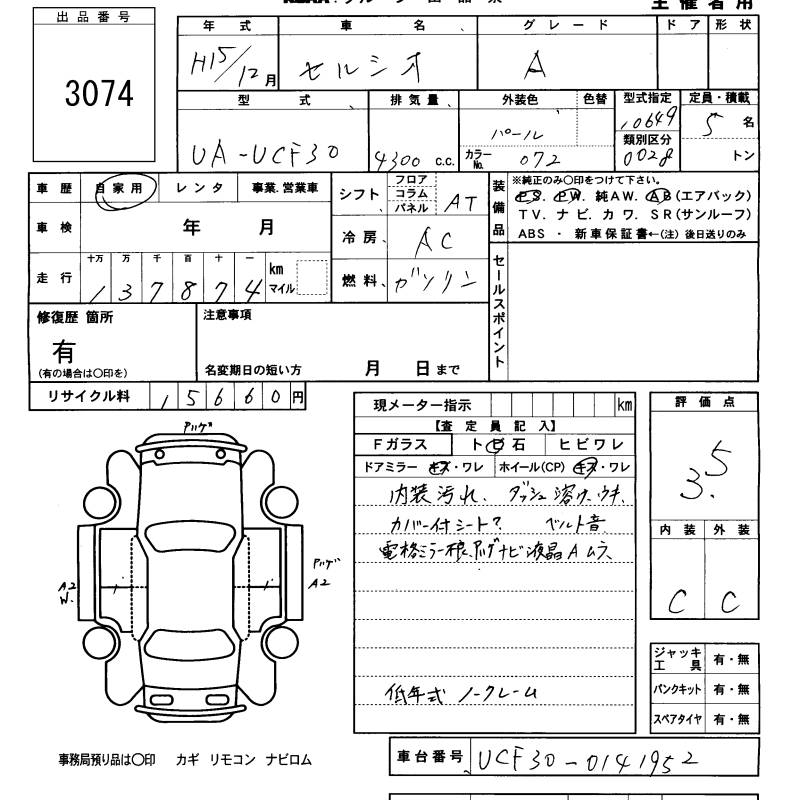 出品番号
3074
年式 車名 グレード ドア 形状
H15/12月 セルシオ A
型式 排気量 外装色 色替 型式指定 定員・積載
UA-UCF30 4300 c.c. パール カラーNo. 072 10649 類別区分 0028 5名 トン
車歴 自家用 レンタ 事業.営業車
車検 年 月
走行 十万 万 千 百 十 一
137874 km マイル
シフト フロア コラム パネル AT
冷房 AC
燃料 ガソリン
装備品 ※純正のみ〇印をつけて下さい。
PS. PW. 純AW. AB(エアバック)
TV. ナビ. カワ. SR(サンルーフ)
ABS ・ 新車保証書←(注) 後日送りのみ
セールスポイント
修復歴 箇所
有
(有の場合は〇印を)
注意事項
名変期日の短い方 月 日まで
リサイクル料 15660円
現メーター指示 km
【査定員記入】
Fガラス トビ石 ヒビワレ
ドアミラー キズ・ワレ ホイール(CP) キズ・ワレ
内装汚れ、ダッシュ溶け、ウキ、
カバー付シート? ベルト音
電格ミラー根、 ナビ液晶Aムラ、
低年式 ノークレーム
評価点
3.5
内装 外装
C C
ジャッキ工具 有・無
パンクキット 有・無
スペアタイヤ 有・無
A2
W.
A2
事務局預り品は〇印 カギ リモコン ナビロム
車台番号 UCF30-0141952